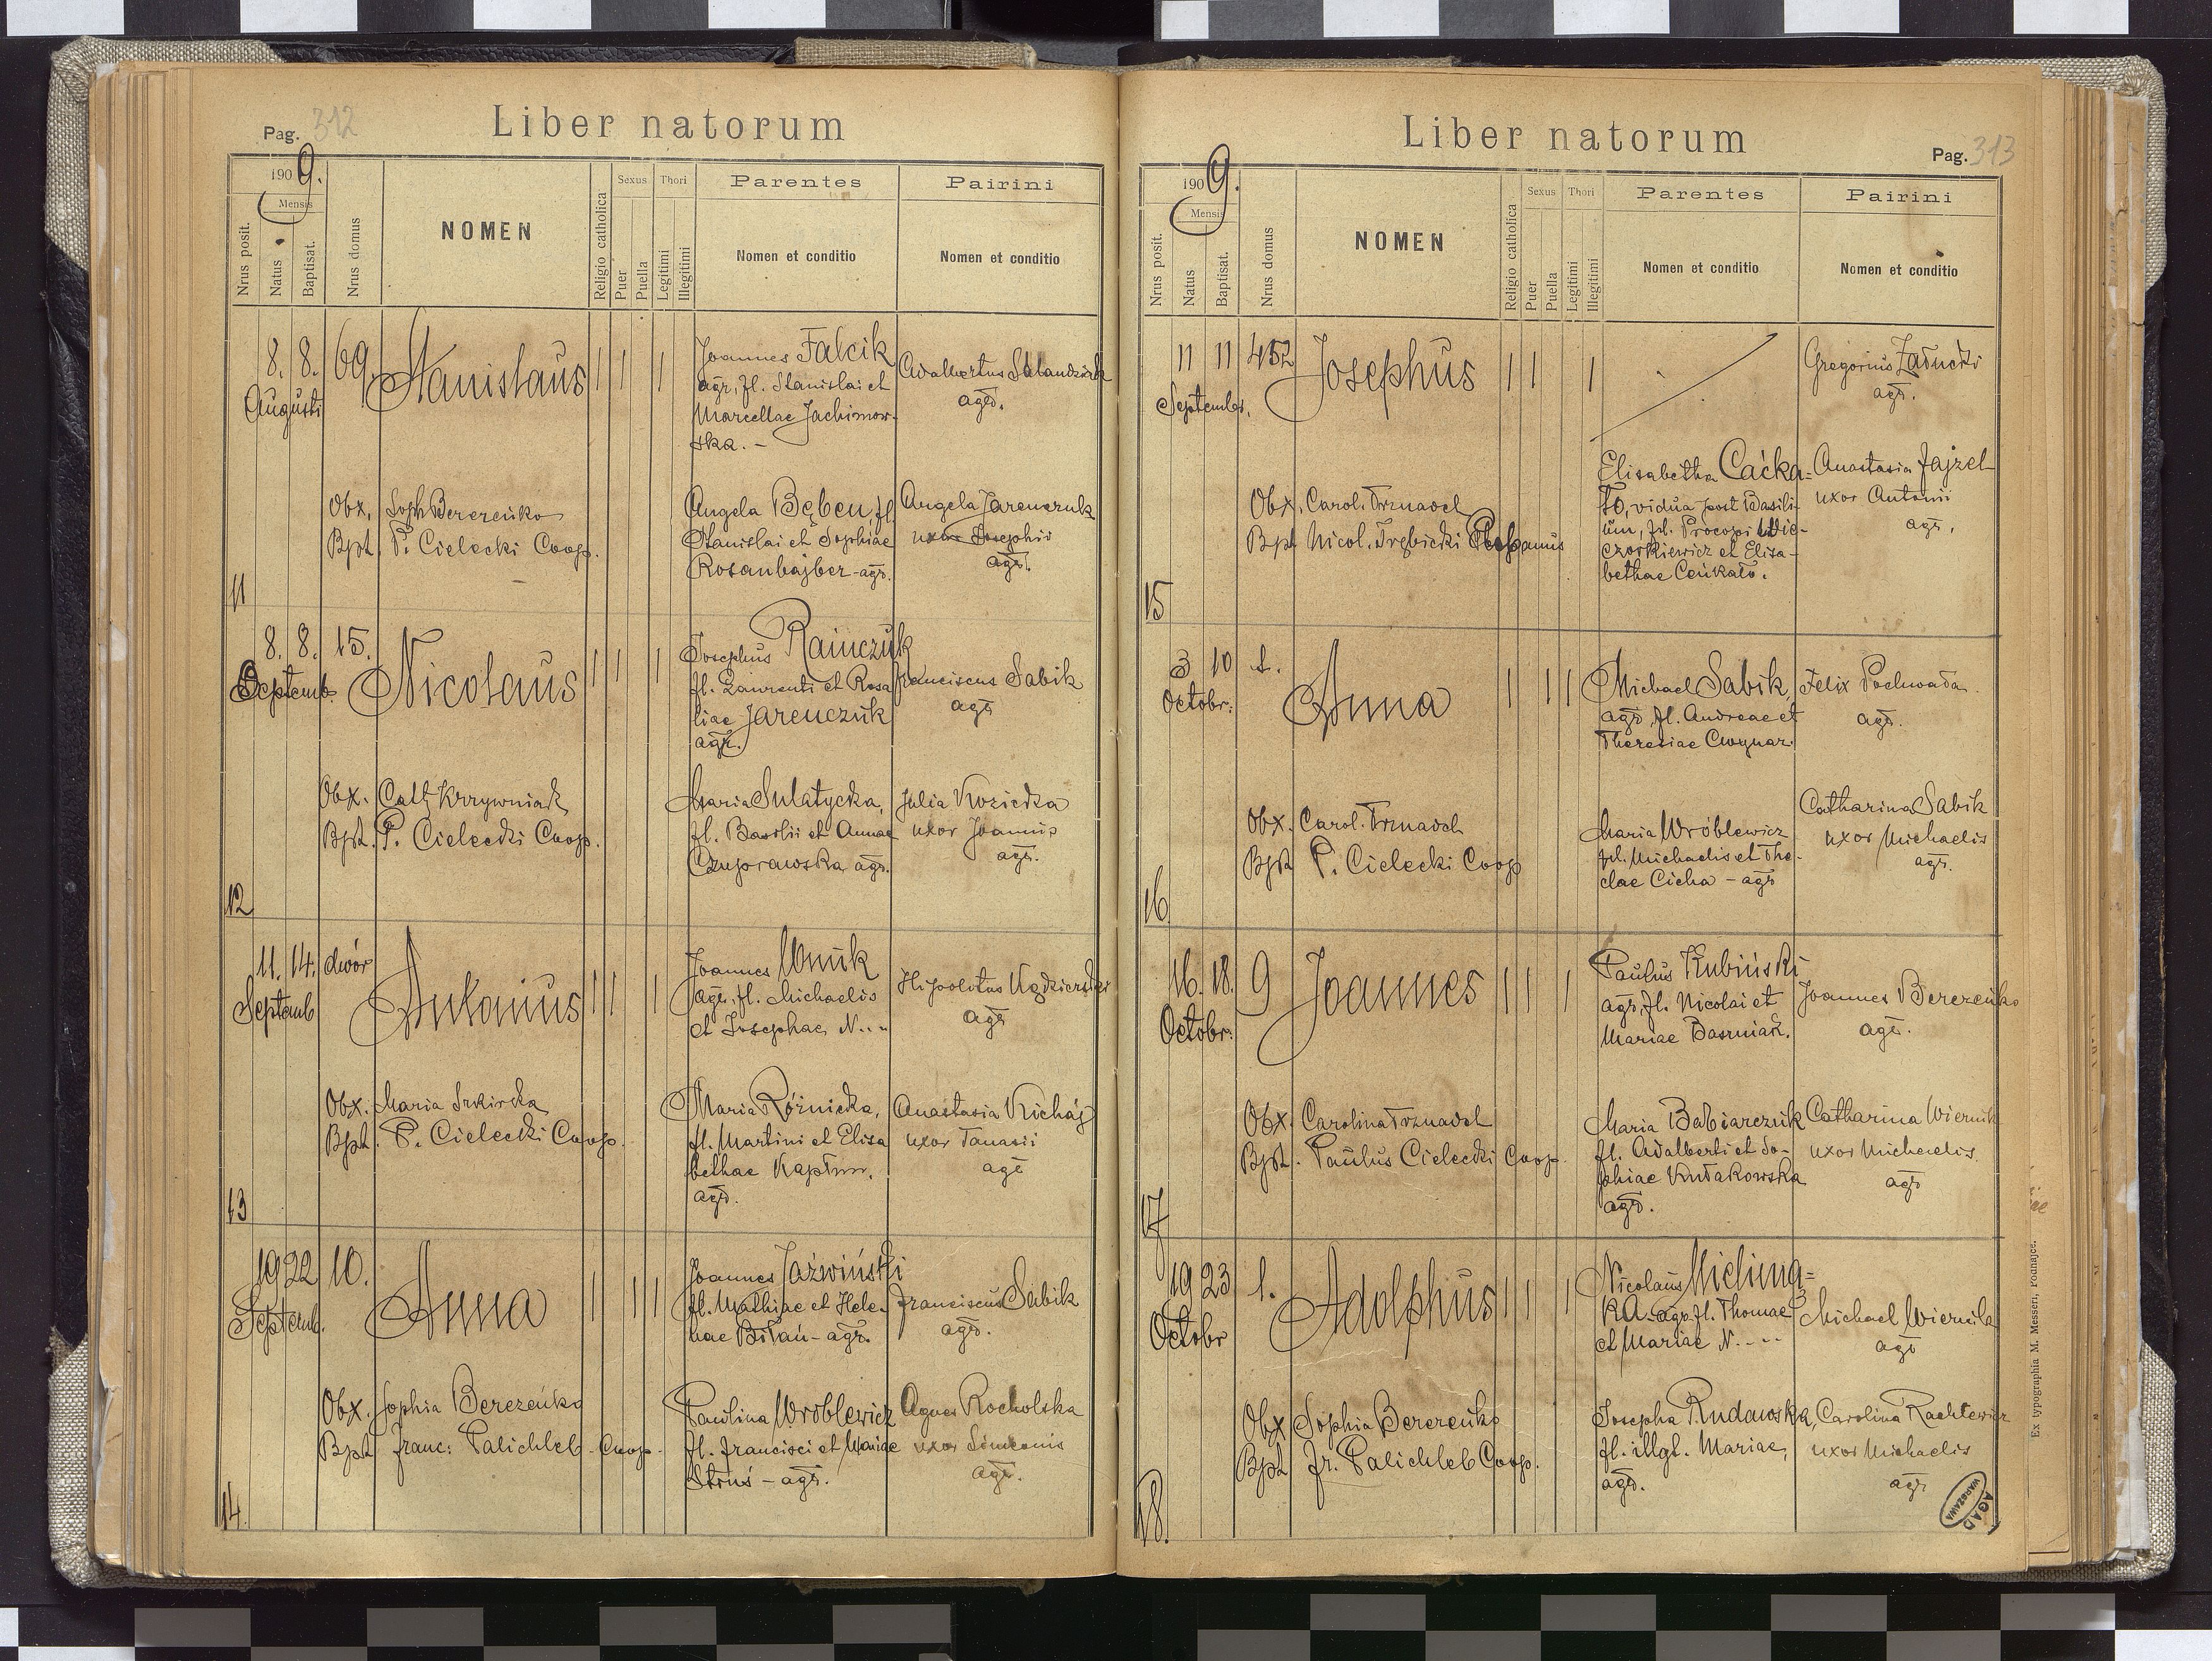 Pag. 312
Liber natorum
1909.
Mensis
Nrus posit.
Natus
Baptisat.
Nrus domus
NOMEN
Religio catholica
Sexus
Puer
Puella
Thori
Legitimi
Illegitimi
Parentes
Nomen et conditio
Pairini
Nomen et conditio
8. 8. 69. Stanislaus 1 1 1
Augusti
Joannes Falcik
agr, fl. Stanislai et
Marcellae Jachimow-
ska. -
Adalbertus
agr.
Obx. Soph Berezeńko
Bpt. P. Cielecki Coop.
Angela Bęben, fl
Stanislai et Sophiae
Rosanbajber - agr.
Angela Jarenczuk
uxor Josephii
agr.
11
8. 8. 15. Nicolaus 1 1 1
Septemb.
Josephus Rainczuk
fl. Laurenti et Rosa
liae Jarenczuk
agr.
Franciscus Sabik
agr
Obx. Cath Krzywniak
Bpt. P. Cielecki Coop.
Maria Sulatycka,
fl. Basilii et Annae
Czuprawska agr.
Julia Kozicka
uxor Joannis
agr.
12
11. 14. dwór Antonius 1 1 1
Septemb
Joannes Wnuk
agr. fl. Michaelis
et Josephae N...
Hipolitus Kędzierski
agr
Obx. Maria
Bpt. P. Cielecki Coop.
Maria Różnicka,
fl. Martini et Elisa
bethae Kapłun.
agr.
Anastasia Kichaj
uxor Tanasii
agr
13
19 22 10. Anna 1 1 1
Septemb.
Joannes Jaźwiński
fl. Mathiae et Hele-
nae Bilań - agr.
Franciscus Sabik
agr.
Obx. Sophia Berezeńko
Bpt Franc: Palichleb - Coop.
Paulina Wróblewicz
fl. Francisci et Mariae
Struś - agr.
Agnes Rocholska
uxor Simeonis
agr.
14.
Liber natorum
Pag. 313
1909.
Mensis
Nrus posit.
Natus
Baptisat.
Nrus domus
NOMEN
Religio catholica
Sexus
Puer
Puella
Thori
Legitimi
Illegitimi
Parentes
Nomen et conditio
Pairini
Nomen et conditio
11 11 452 Josephus 1 1 1
Septembr.
Gregorius Załucki
agr.
Obx. Carol. Trznadel
Bpt Nicol. Trębicki
Elisabetha Caćka=
ło, vidua post Basili-
um, fl. Procopi Wie-
czorkiewicz et Elisa-
bethae Ceukało.
Anastasia Jajzel
uxor Antonii
agr.
15
3 10 1. Anna 1 1 1
Octobr:
Michael Sabik,
agr, fl. Andreae et
Theresiae Cwynar.
Felix Pochwała.
agr.
Obx. Carol. Trznadel
Bpt P. Cielecki Coop
Maria Wróblewicz
fl. Michaelis et The-
clae Cicha - agr
Catharina Sabik
uxor Michaelis
agr.
16
16. 18. 9 Joannes 1 1 1
Octobr:
Paulus Kubiński
agr, fl. Nicolai et
Mariae Basrniak.
Joannes Berezeńko
agr.
Obx. Carolina Trznadel
Bpt. Paulus Cielecki Coop.
Maria Babiarczuk
fl. Adalberti et So-
phiae Kułakowska
agr.
Catharina Wiernik
uxor Michaelis
agr
17
19 23 1. Adolphus 1 1 1
Octobr
Nicolaus
ka - agr. fl. Thomae
et Mariae N. ...
Michael Wiernik
agr
Obx Sophia Berezeńko
Bpt Fr. Palichleb Coop.
Josepha Rudawska,
fl. illgl. Mariae,
agr.
Carolina Rachtewicz
uxor Michaelis
agr
18.
AGAD
WARSZAWA
Ex typographia M. Messeri, Podhajce.